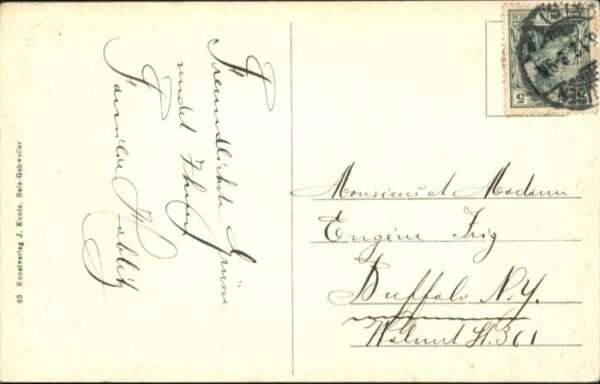 Freundlichste Grüsse
sendet Ihnen
Familie
Monsieur et Madame
Eugène Frig
Buffalo N.Y.
Walnut St. 361
5
89 Kunstverlag J. Kuntz, Sulz-Gebweiler